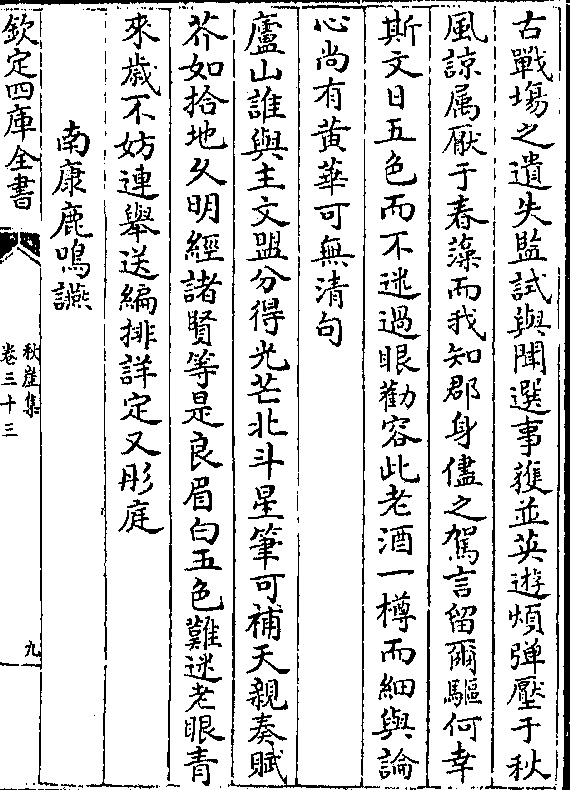 古戰場之遺失監試與聞選事獲並英遊煩彈壓于秋
風諒属厭于春藻而我知郡身儘之駕言留爾驅何幸
斯文日五色而不迷過眼勸容此老酒一樽而細與論
心尚有黄華可無清句
廬山誰與主文盟分得光芒北斗星筆可補天親奏賦
芥如拾地久明經諸賢等是良眉白五色難迷老眼青
來歲不妨連舉送編排詳定又彤庭
南康鹿鳴讌
欽定四庫全書
秋崖集
卷三十三
九